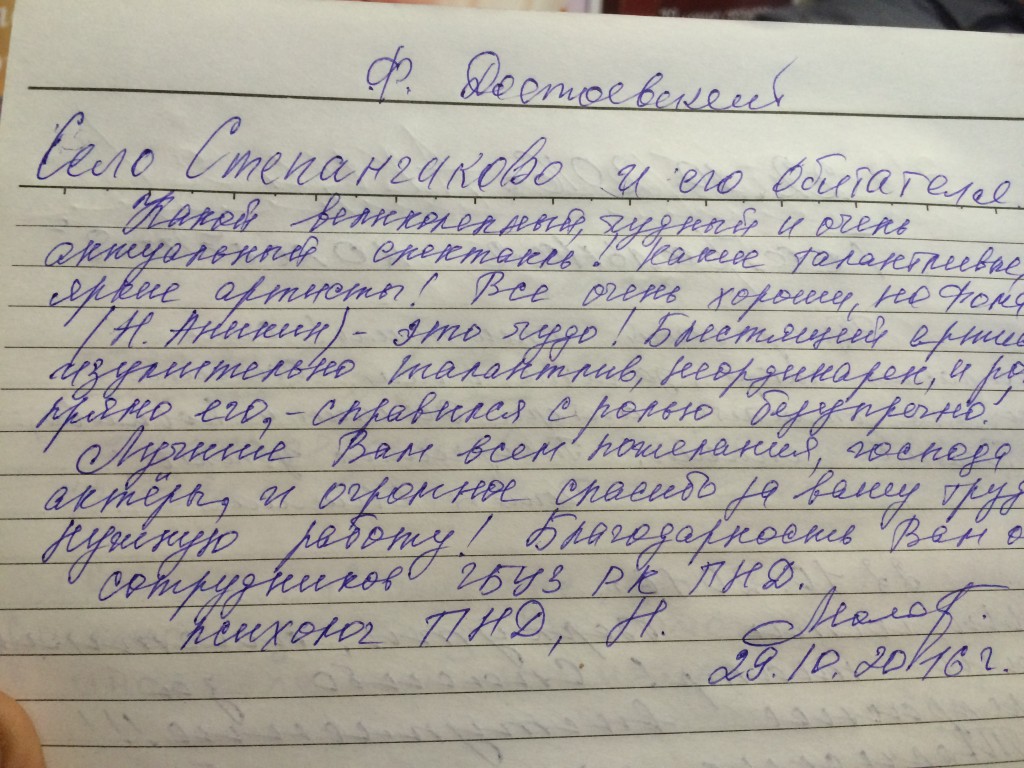 Ф. Достоевский
Село Степанчиково и его обитатели.
Какой великолепный, чудный и очень
актуальный спектакль! Какие талантливые,
яркие артисты! Все очень хороши, но Фома
(Н. Аникин) - это чудо! Блестящий артис
изумительно талантлив, неординарен, и ро
прямо его, - справился с ролью безупречно.
Лучшие Вам всем пожелания, господа
актёры, и огромное спасибо за вашу труд
нужную работу! Благодарность Вам о
сотрудников ГБУЗ РК ПНД.
психолог ПНД, Н.
29.10.2016 г.